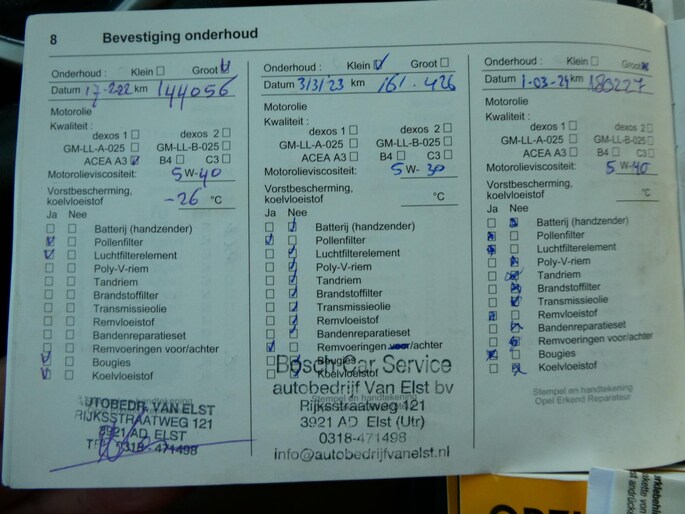 8 Bevestiging onderhoud
Onderhoud : Klein Groot
Datum 17-2-22 km 144056
Motorolie
Kwaliteit :
dexos 1 dexos 2
GM-LL-A-025 GM-LL-B-025
ACEA A3 B4 C3
Motorolieviscositeit: 5 W-40
Vorstbescherming,
koelvloeistof -26 °C
Ja Nee
Batterij (handzender)
Pollenfilter
Luchtfilterelement
Poly-V-riem
Tandriem
Brandstoffilter
Transmissieolie
Remvloeistof
Bandenreparatieset
Remvoeringen voor/achter
Bougies
Koelvloeistof
AUTOBEDR. VAN ELST
RIJKSSTRAATWEG 121
3921 AD ELST
0318-471498
Onderhoud : Klein Groot
Datum 3/3/'23 km 161.426
Motorolie
Kwaliteit :
dexos 1 dexos 2
GM-LL-A-025 GM-LL-B-025
ACEA A3 B4 C3
Motorolieviscositeit: 5 W-30
Vorstbescherming,
koelvloeistof °C
Ja Nee
Batterij (handzender)
Pollenfilter
Luchtfilterelement
Poly-V-riem
Tandriem
Brandstoffilter
Transmissieolie
Remvloeistof
Bandenreparatieset
Remvoeringen voor/achter
Bougies
Koelvloeistof
Bosch Car Service
autobedrijf Van Elst bv
Stempel en handtekening
Rijksstraatweg 121
3921 AD Elst (Utr)
0318-471498
info@autobedrijfvanelst.nl
Onderhoud : Klein Groot
Datum 1-03-24 km 180227
Motorolie
Kwaliteit :
dexos 1 dexos 2
GM-LL-A-025 GM-LL-B-025
ACEA A3 B4 C3
Motorolieviscositeit: 5 W-40
Vorstbescherming,
koelvloeistof °C
Ja Nee
Batterij (handzender)
Pollenfilter
Luchtfilterelement
Poly-V-riem
Tandriem
Brandstoffilter
Transmissieolie
Remvloeistof
Bandenreparatieset
Remvoeringen voor/achter
Bougies
Koelvloeistof
Stempel en handtekening
Opel Erkend Reparateur